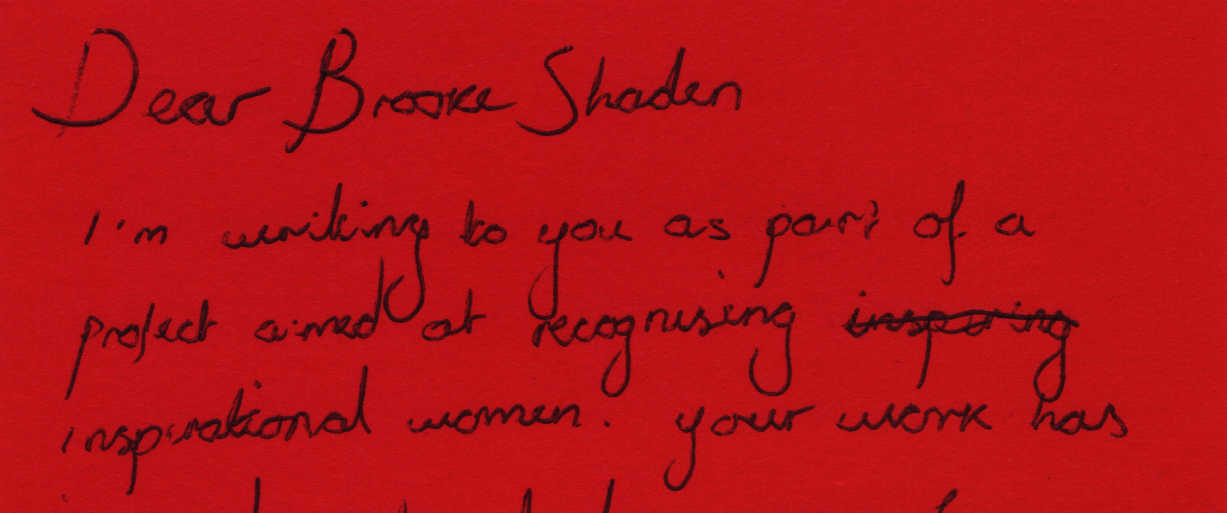 Dear Brooke Shaden
I'm writing to you as part of a
project aimed at recognising inspiring
inspirational women. your work has